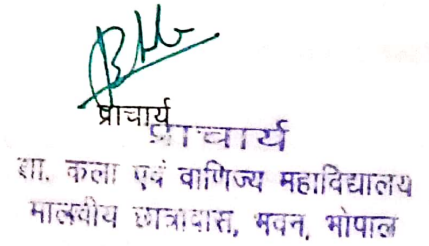 प्राचार्य
प्राचार्य
शा. कला एवं वाणिज्य महाविद्यालय
मालवीय छात्रावास, भवन, भोपाल